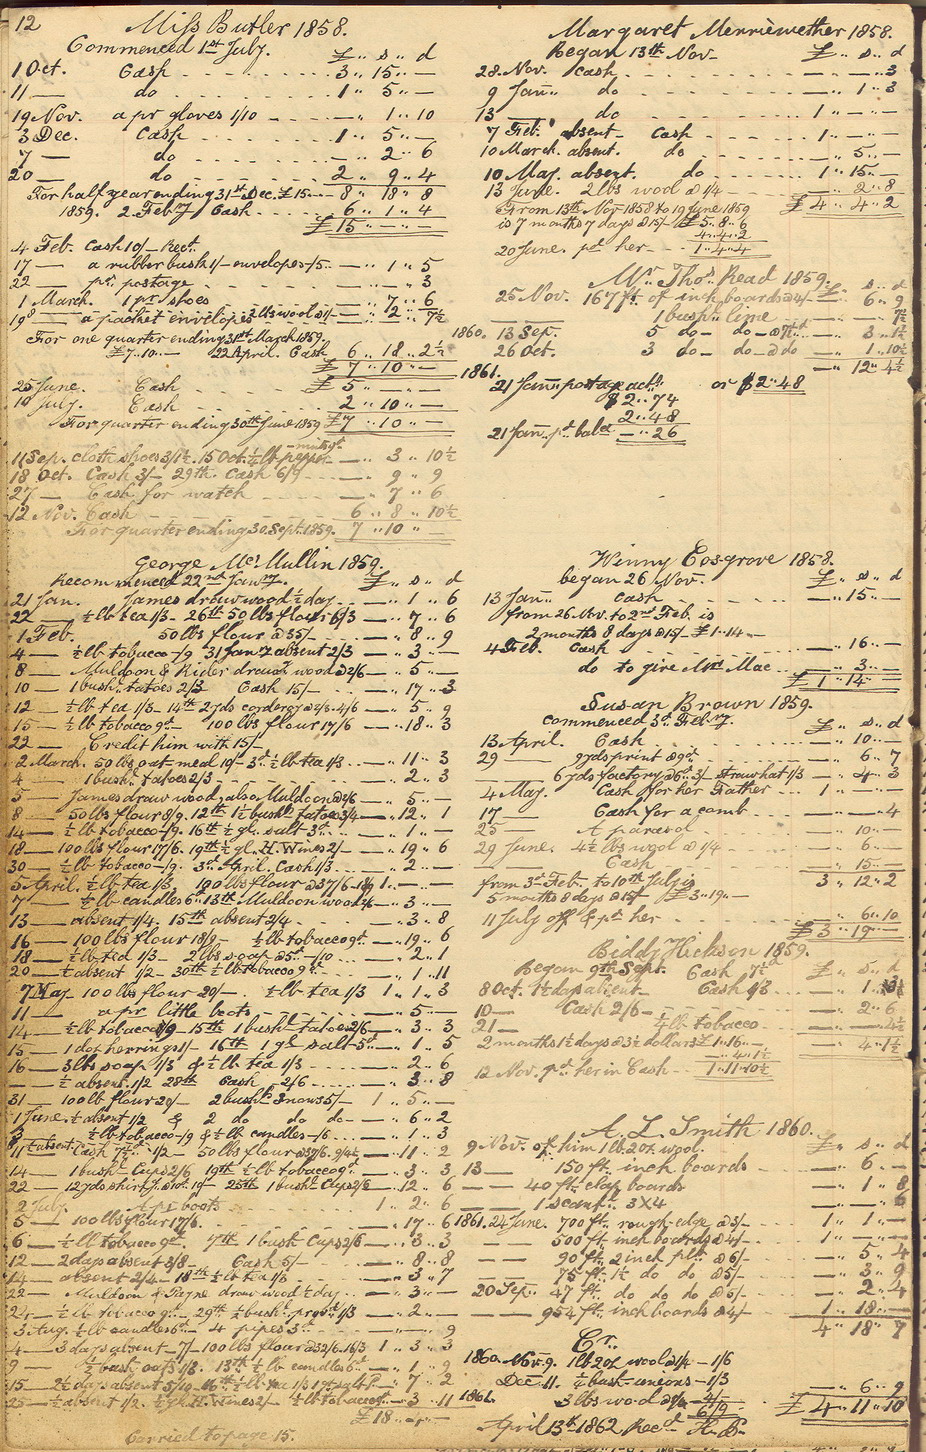 12
Miss Butler 1858.
Commenced 1st July. £ „ s „ d
1 Oct. Cash 3 „ 15 „ —
11 — do 1 „ 5 „ —
19 Nov. a pr gloves 1/10 — „ 1 „ 10
3 Dec. Cash 1 „ 5 „ —
7 — do — „ 2 „ 6
20 — do 2 „ 9 „ 4
For half year ending 31st Dec. £15 — 8 „ 18 „ 8
1859. 2 Feby Cash 6 „ 1 „ 4
£ 15 „ — „ —
4 Feb. Cash 10/– Rect.
17 — a rubber bush 1/– envelopes –/5 — „ 1 „ 5
22 — pr. postage — „ — „ 3
1 March. 1 pr shoes — „ 7 „ 6
19 — a packet envelopes 2 lbs wool — „ 12 „ 7½
For one quarter ending 31st March 1859.
£7 „ 10 „ — 22 April. Cash 6 „ 18 „ 2½
£ 7 „ 10 „ —
25 June. Cash £ 5 „ — „ —
10 July. Cash 2 „ 10 „ —
For quarter ending 30th June 1859 £ 7 „ 10 „ —
11 Sep. cloth shoes 3/1½. 15 Oct. ¼ lb pepper — „ 3 „ 10½
18 Oct. Cash 3/– 29th. Cash 6/9 — „ 9 „ 9
27 — Cash for watch — „ 7 „ 6
12 Nov. Cash 6 „ 8 „ 10½
For quarter ending 30. Sept. 1859. 7 „ 10 „ —
George McMullin 1859.
Recommenced 22nd Jany. £ „ s „ d
21 Jan. James draw wood ½ day — „ 1 „ 6
22 ½ lb tea 1/3 – 26th 50 lbs flour 6/3 — „ 7 „ 6
1 Feb. 50 lbs flour @ 35/– — „ 8 „ 9
4 — ½ lb tobacco –/9 31 Jany absent 2/3 — „ 3 „ —
8 — Muldoon & Rider drawg wood @ 2/6 — „ 5 „ —
10 — 1 bush. tatoes 2/3 Cash 15/– — „ 17 „ 3
12 — ½ lb tea 1/3 – 14th 2 yds corderoy @ 2/3 – 4/6 — „ 5 „ 9
15 — ½ lb tobacco 9d — 100 lbs flour 17/6 — „ 18 „ 3
22 — Credit him with 15/–
2 March. 50 lbs oat-meal 10/– 3d ½ lb tea 1/3 — „ 11 „ 3
4 — 1 bush. tatoes 2/3 — „ 2 „ 3
5 — James draw wood, also Muldoon @ 2/6 — „ 5 „ —
8 — 50 lbs flour 8/9. 12th 1½ bushl tatoes 3/4 — „ 12 „ 1
14 — ½ lb tobacco –/9. 16th ½ gl. salt 3d — „ 1 „ —
18 — 100 lbs flour 17/6. 19th ½ gl. H. Wines 2/– — „ 19 „ 6
30 — ½ lb tobacco –/9. 3d April. Cash 1/3 — „ 2 „ —
5 April. ½ lb tea 1/3 100 lbs flour @ 37/6 – 18/9 1 „ — „ —
7 — ½ lb candles 6d 13th Muldoon wood 2/6 — „ 3 „ —
13 — absent 1/4. 15th absent 2/4 — „ 3 „ 8
16 — 100 lbs flour 18/9 – ½ lb tobacco 9d — „ 19 „ 6
18 — ½ lb tea 1/3 – 2 lbs soap @ 5d –/10 — „ 2 „ 1
20 — ½ absent 1/2 – 30th ½ lb tobacco 9d — „ 1 „ 11
7 May 100 lbs flour 20/– ½ lb tea 1/3 1 „ 1 „ 3
11 — a pr little boots — „ 5 „ —
14 — ½ lb tobacco –/9 – 15th 1 bushl tatoes 2/6 — „ 3 „ 3
15 — 1 doz herrings 1/– 16th 1 gl salt 5d — „ 1 „ 5
16 — 3 lbs soap 1/3 & ½ lb tea 1/3 — „ 2 „ 6
— ½ absent. 1/2 28th Cash 2/6 — „ 3 „ 8
31 — 100 lb flour 20/– 2 bushl 5/– 1 „ 5 „ —
1 June. ½ absent 1/2 & 2 do do do — „ 6 „ 2
3 — ½ lb tobacco –/9 & ½ lb candles –/6 — „ 1 „ 3
11 ½ absent Cash 7d 1/2 – 50 lbs flour @ 37/6. 9/4½ — „ 11 „ 2
14 — 1 bushl Cups 2/6 19th ½ lb tobacco 9d — „ 3 „ 3
22 — 12 yds shirtg @ 10d 10/– 25th 1 bushl Cups 2/6 — „ 12 „ 6
2 July. A pr boots 1 „ 2 „ 6
5 — 100 lbs flour 17/6. — „ 17 „ 6
6 — ½ lb tobacco 9d 7th 1 bush Cups 2/6 — „ 3 „ 3
12 — 2 days absent 3/8 Cash 5/– — „ 8 „ 8
14 — absent 2/4 – 18th ½ lb tea 1/3 — „ 3 „ 7
22 — Muldoon & Payne draw wood ½ day — „ 3 „ —
24 — ½ lb tobacco 9d – 29th ½ bushl 1/3 — „ 2 „ —
3 Aug. ½ lb candles 6d — 4 pipes 3d — „ — „ 9
4 — 3 days absent – 7/– 100 lbs flour @ 32/6 – 16/3 1 „ 3 „ 3
9 — ½ bush oats 1/3. 13th ½ lb candles 6d — „ 1 „ 9
15 — 2½ days absent 5/10 – 16th ½ lb tea 1/3 — „ 7 „ 2
25 — ½ absent 1/2. ½ gl. H. Wines 2/– ½ lb tobacco 9d — „ 3 „ 11
£ 18 „ — „ —
Carried to page 15.
Margaret Merriewether 1858.
Began 13th Nov. £ „ s „ d
28 Nov. Cash — „ — „ 3
9 Jany do — „ 1 „ 3
13 — do 1 „ — „ —
7 Feb. absent – Cash 1 „ — „ —
10 March. absent. do — „ 5 „ —
10 May. absent. do 1 „ 15 „ —
13 June. 2 lbs wool @ 1/4 — „ 2 „ 8
From 13th Nov 1858 to 19 June 1859 £ 4 „ 4 „ 2
is 7 months 7 days @ 15/– £ 5 „ 8 „ 6
4 „ 4 „ 2
20 June. pd her — 1 „ 4 „ 4
Mr. Thos. Read 1859. £ „ s „ d
25 Nov. 167 ft. of inch boards @ 4/– — „ 6 „ 9
1 bushl lime — „ — „ 7½
1860. 13 Sep. 5 do – do – @ 7½d — „ 3 „ 1½
26 Oct. 3 do – do – @ do — „ 1 „ 10½
— „ 12 „ 4½
1861.
21 Jany postage actt. or $2 „ 48
$2 „ 74
2 „ 48
21 Jany. pd balce — „ 26
Winny Cosgrove 1858.
began 26 Nov. £ „ s „ d
13 Jany Cash — „ 15 „ —
from 26 Nov. to 2nd Feb. is
2 months 8 days @ 15/– £1 „ 14 „ —
4 Feb. Cash — „ 16 „ —
do to give Mrs Mac — „ 3 „ —
£ 1 „ 14 „ —
Susan Brown 1859.
Commenced 3d. Feby. £ „ s „ d
13 April. Cash — „ 10 „ —
29 — 9 yds print @ 9d — „ 6 „ 7
— 6 yds factory @ 6d 3/– straw hat 1/3 — „ 4 „ 3
4 May. Cash for her Father 1 „ — „ —
17 — Cash for a comb — „ — „ 4
25 — A parasol — „ 10 „ —
29 June. 4½ lbs wool @ 1/4 — „ 6 „ —
Cash — „ 15 „ —
from 3d Feb. to 10th July is 3 „ 12 „ 2
5 months 8 days @ 15/– £3 „ 19 „ —
11 July off & pd her — „ 6 „ 10
£ 3 „ 19 „ —
Biddy Hickson 1859.
Began 9th Sept. Cash 7½d £ „ s „ d
8 Oct. 1½ days absent Cash 1/3 — „ 1 „
10 — Cash 2/6 — „ 2 „ 6
21 — ¼ lb tobacco — „ — „ 4½
2 months 1½ days @ 3½ dollars £1 „ 16 „ — — „ 4 „ 1½
— „ 4 „ 1½
12 Nov. pd. her in Cash — 1 „ 11 „ 10½
A. L. Smith 1860.
9 Nov. of him 1 lb. 2 oz. wool. £ „ s „ d
13 — 150 ft. inch boards — „ 6 „ —
— — 40 ft. clap boards — „ 1 „ 8
— — 1 scantg. 3 X 4 — „ — „ 6
1861. 24 June. 700 ft. rough-edge @ 3/– 1 „ 1 „ —
— — 500 ft. inch boards @ 4/– 1 „ — „ —
— — 90 ft. 2 inch plk @ 6/– — „ 5 „ 4
— — 75 ft. 1½ do do @ 5/– — „ 3 „ 9
20 Sep. 47 ft. do do do @ 5/– — „ 2 „ 4
— — 954 ft. inch boards @ 4/– 1 „ 18 „ —
4 „ 18 „ 7
Cr.
1860. Nov. 9. 1 lb 2 oz wool @ 1/4 – 1/6
Dec. 11. ¼ bush onions – 1/3
1861. 3 lbs wool @ 1/4 – 4/– — „ 6 „ 9
6/9 £ 4 „ 11 „ 10
April 13th 1862 Recd H. B.